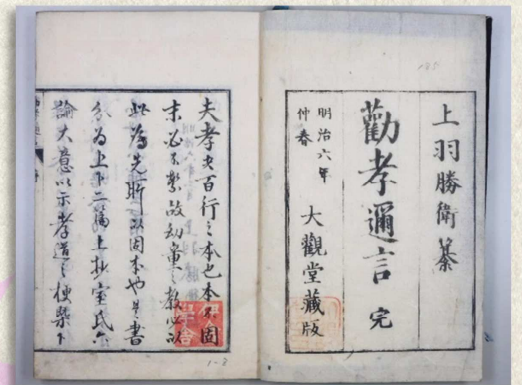 上羽勝衛纂
勸孝邇言 完
明治六年
仲春
大觀堂藏版
185
夫孝者百行之本也本不固
末必不繁故幼童之教必以
此為先所以固本也是書
分為上下二篇上抄室氏六
諭大意以示孝道之梗槩下
1-8